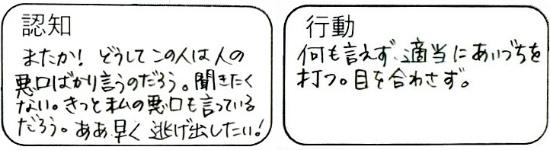 認知
またか！どうしてこの人は人の
悪口ばかり言うのだろう。聞きたく
ない。きっと私の悪口も言っている
だろう。ああ早く逃げ出したい！
行動
何も言えず、適当にあいづちを
打つ。目を合わさず。